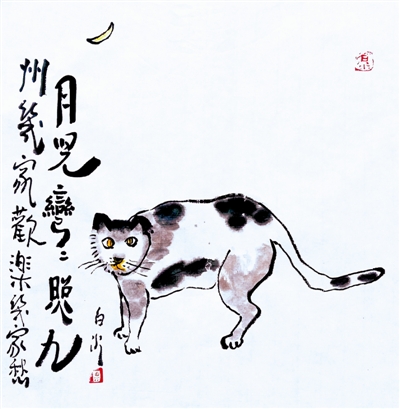 月兒彎〻照九
州幾家歡樂幾家愁